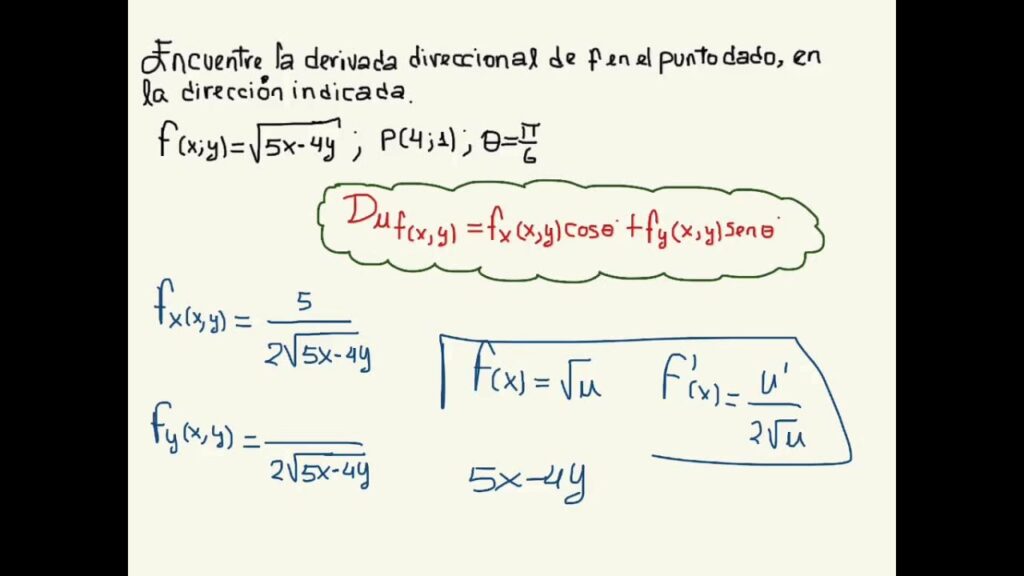 Encuentre la derivada direccional de f en el punto dado, en
la dirección indicada.
f(x;y)=√5x-4y ; P(4;1); θ=π/6
Du f(x,y) = fx(x,y)cosθ + fy(x,y)senθ
fx(x,y) = 5/2√5x-4y
f(x) = √u F'(x) = u'/2√u
fy(x,y) = /2√5x-4y
5x-4y